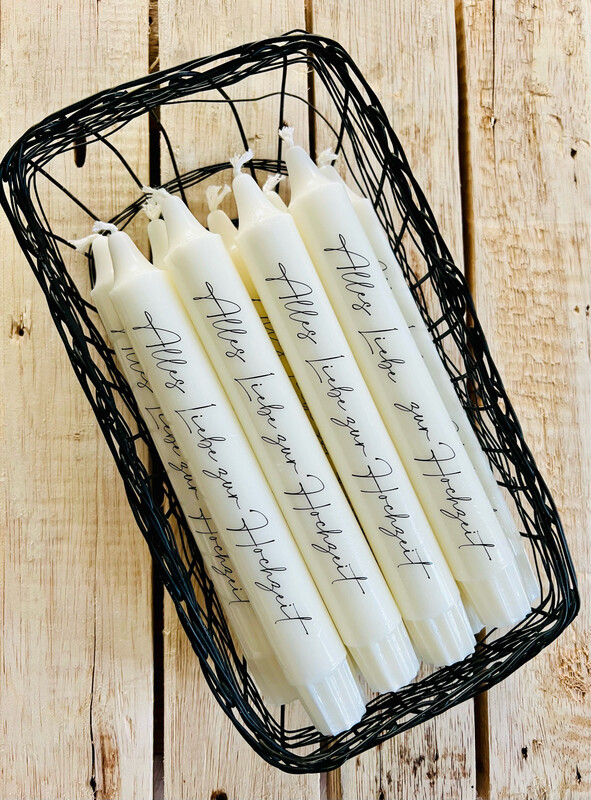 Alles Liebe zur Hochzeit
Alles Liebe zur Hochzeit
Alles Liebe zur Hochzeit
Alles Liebe zur Hochzeit
Liebe zur Hochzeit